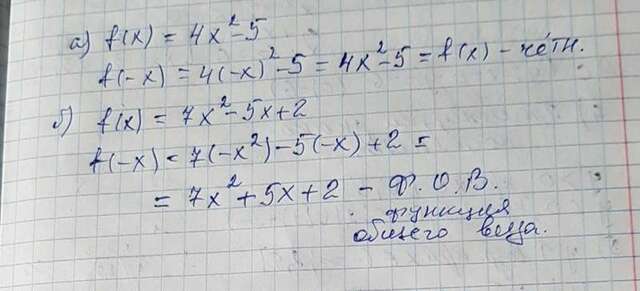 а) f(x) = 4x² - 5
f(-x) = 4(-x)² - 5 = 4x² - 5 = f(x) - чётн.
б) f(x) = 7x² - 5x + 2
f(-x) = 7(-x²) - 5(-x) + 2 =
= 7x² + 5x + 2 - Ф.О.В.
функция
общего вида.